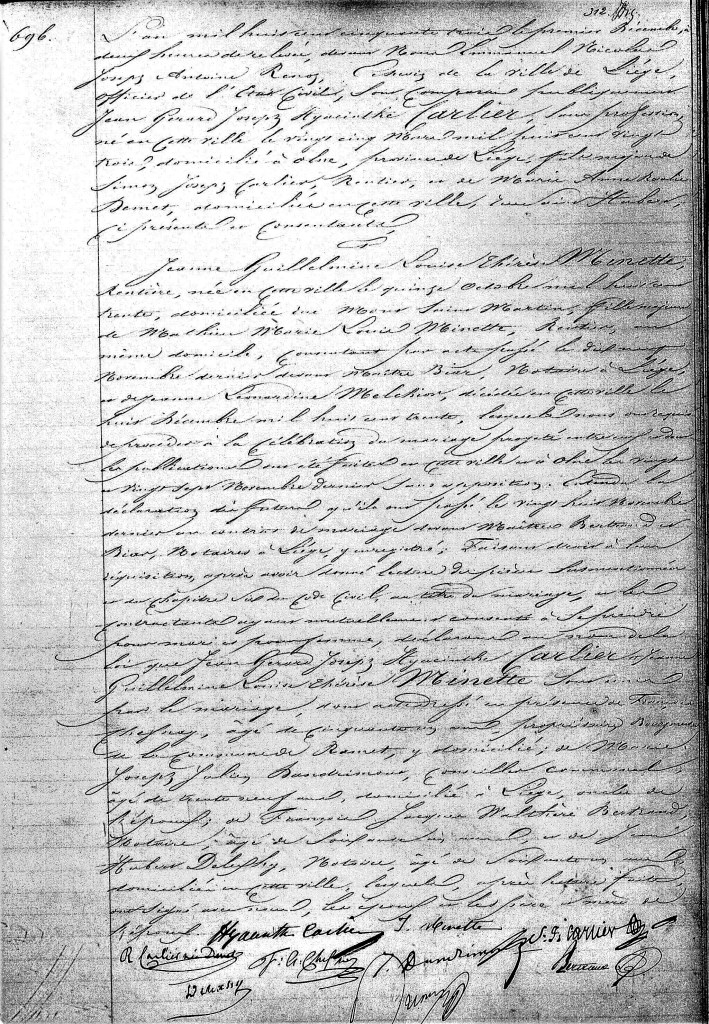 312
696.
L'an mil huit cent cinquante trois le premier Décembre, à
deux heures de relevée, devant Nous Emmanuel Nicolas
Joseph Antoine Renoz, Echevin de la ville de Liége,
officier de l'Etat Civil, sont comparus publiquement
Jean Gerard Joseph Hyacinthe Carlier, sans profession,
né en cette ville le vingt cinq Mars mil huit cent vingt
trois, domicilié à olne, province de Liége, fils majeur de
Simon Joseph Carlier, Rentier, et de Marie Anne
Demet, domiciliés en cette ville, rue Saint Hubert,
ci présents et consentants,
Et
Jeanne Guillelmine Louise Thérèse Minette,
Rentière, née en cette ville le quinze octobre mil huit cent
trente, domiciliée rue Mont Saint Martin, fille majeure
de Mathieu Marie Louis Minette, Rentier, au
même domicile, consentant par acte passé le dix neuf
Novembre dernier devant Maître Biar, Notaire à Liége,
et de Jeanne Leonardine Melchior, décédée en cette ville le
huit Décembre mil huit cent trente, lesquels nous ont requis
de procéder à la célébration du mariage projeté entre eux dont
les publications ont été faites en cette ville et à olne les vingt
et vingt sept Novembre dernier sans opposition. Entendu la
déclaration des futurs qu'ils ont passé le vingt huit Novembre
dernier un contrat de mariage devant Maîtres Bertrand et
Biar, Notaires à Liége, y enregistré; Faisant droit à leur
réquisition, après avoir donné lecture des pièces susmentionnées
et du chapitre six du Code Civil, au titre du mariage, et les
contractants ayant mutuellement consenti à se prendre
pour mari et pour femme, déclarons au nom de la
loi que Jean Gerard Joseph Hyacinthe Carlier et Jeanne
Guillelmine Louise Thérèse Minette sont unis
par le mariage, dont acte dressé en présence de François
Chefnay, âgé de cinquante ans, propriétaire, Bourgmestre
de la Commune de Ramet, y domicilié; de Marie
Joseph Julien Dandrimont, Conseiller communal,
âgé de trente neuf ans, domicilié à Liége, oncle de
l'Epouse; de François Jacques Walthère Bertrand,
Notaire, âgé de soixante ans, et de
Hubert Delexhy, Notaire, âgé de soixante ans
domiciliés en cette ville, lesquels, après lecture faite,
ont signé avec nous, les époux et les père et mère de
l'époux.
Hyacinthe Carlier J. Minette S. J. Carlier
R Carlier née Demet
Delexhy
Renoz